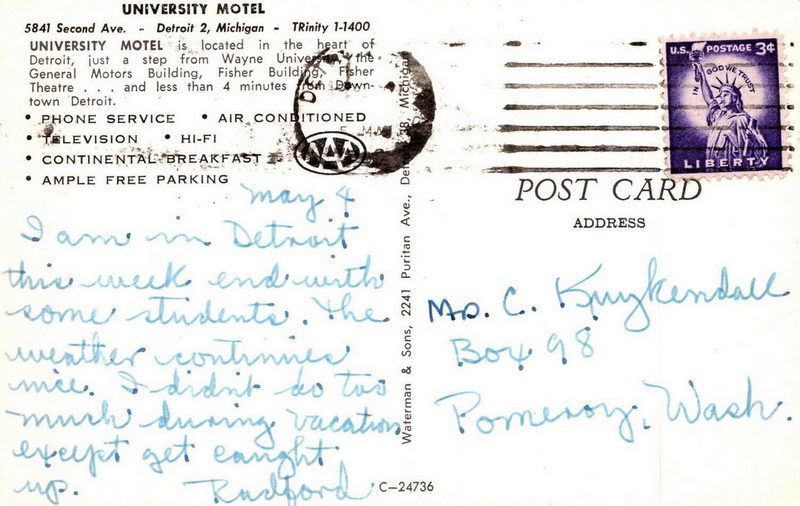 UNIVERSITY MOTEL
5841 Second Ave. - Detroit 2, Michigan - TRinity 1-1400
UNIVERSITY MOTEL is located in the heart of
Detroit, just a step from Wayne University, the
General Motors Building, Fisher Building, Fisher
Theatre . . . and less than 4 minutes from Down-
town Detroit.
• PHONE SERVICE • AIR CONDITIONED
• TELEVISION • HI-FI
• CONTINENTAL BREAKFAST
• AMPLE FREE PARKING
AAA
May 4
I am in Detroit
this week end with
some students. The
weather continues
nice. I didnt do too
much during vacation
except get caught
up. Radford
Waterman & Sons, 2241 Puritan Ave., Michigan
C-24736
U.S. POSTAGE 3¢
IN GOD WE TRUST
LIBERTY
POST CARD
ADDRESS
Mrs. C. Kuykendall
Box 98
Pomeroy, Wash.